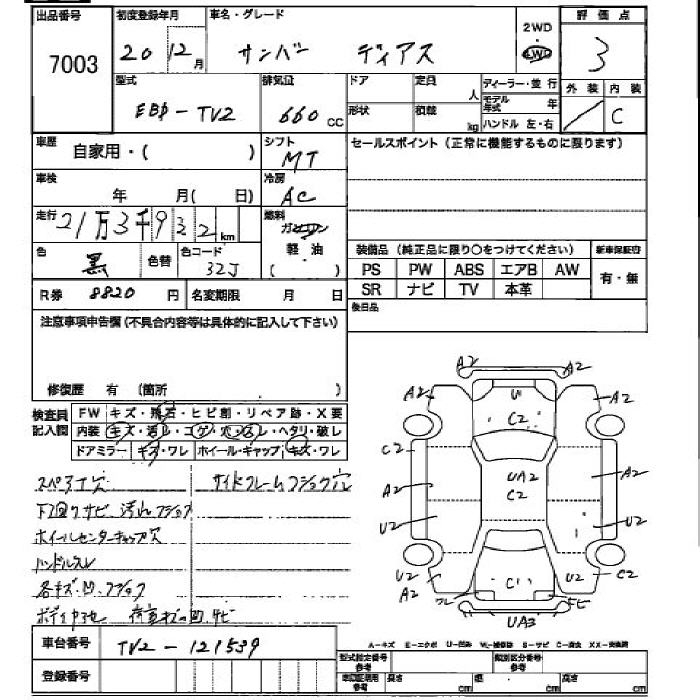 出品番号 初度登録年月 車名・グレード 2WD 評価点
7003 20 12月 サンバー ディアス 4WD 3
型式 排気量 ドア 定員 人 ディーラー・並行 外装 内装
EBD-TV2 660cc 形状 積載 kg モデル年式 年 C
ハンドル 左・右
車歴 シフト セールスポイント (正常に機能するものに限ります)
自家用・( ) MT
車検 冷房
年 月( 日) AC
走行 燃料
21万3千932km ガソリン
色 色替 色コード 軽油 装備品 (純正品に限り○をつけてください) 新車保証書
黒 32J ( ) PS PW ABS エアB AW 有・無
R券 8820円 名変期限 月 日 SR ナビ TV 本革
注意事項申告欄 (不具合内容等は具体的に記入して下さい) 後日品
修復歴 有 (箇所 )
検査員記入欄 FW キズ・飛石・ヒビ割・リペア跡・X要
内装 キズ・汚レ・コゲ・穴・スレ・ヘタリ・破レ
ドアミラー キズ・ワレ ホイール・キャップ キズ・ワレ
スペアナシ サイドフレームフショク穴
下廻りサビ 汚れフショク
ホイールセンターキャップ欠
ハンドルスレ
各キズ・凹・フショク
ボディヤセ 荷室キズ凹サビ
A2 A2
A2 U A2
C2
C2
A2 UA2 A2
C2
U2 U2
U2 C1 U2 C2
A2 ワレ ヒビ
UA3
車台番号 TV2-121539
A-キズ E-エクボ U-凹み W-補修跡 S-サビ C-腐食 XX-交換済
登録番号 型式指定番号 類別区分番号
車印証明用参考 長さ cm 幅 cm 高さ cm